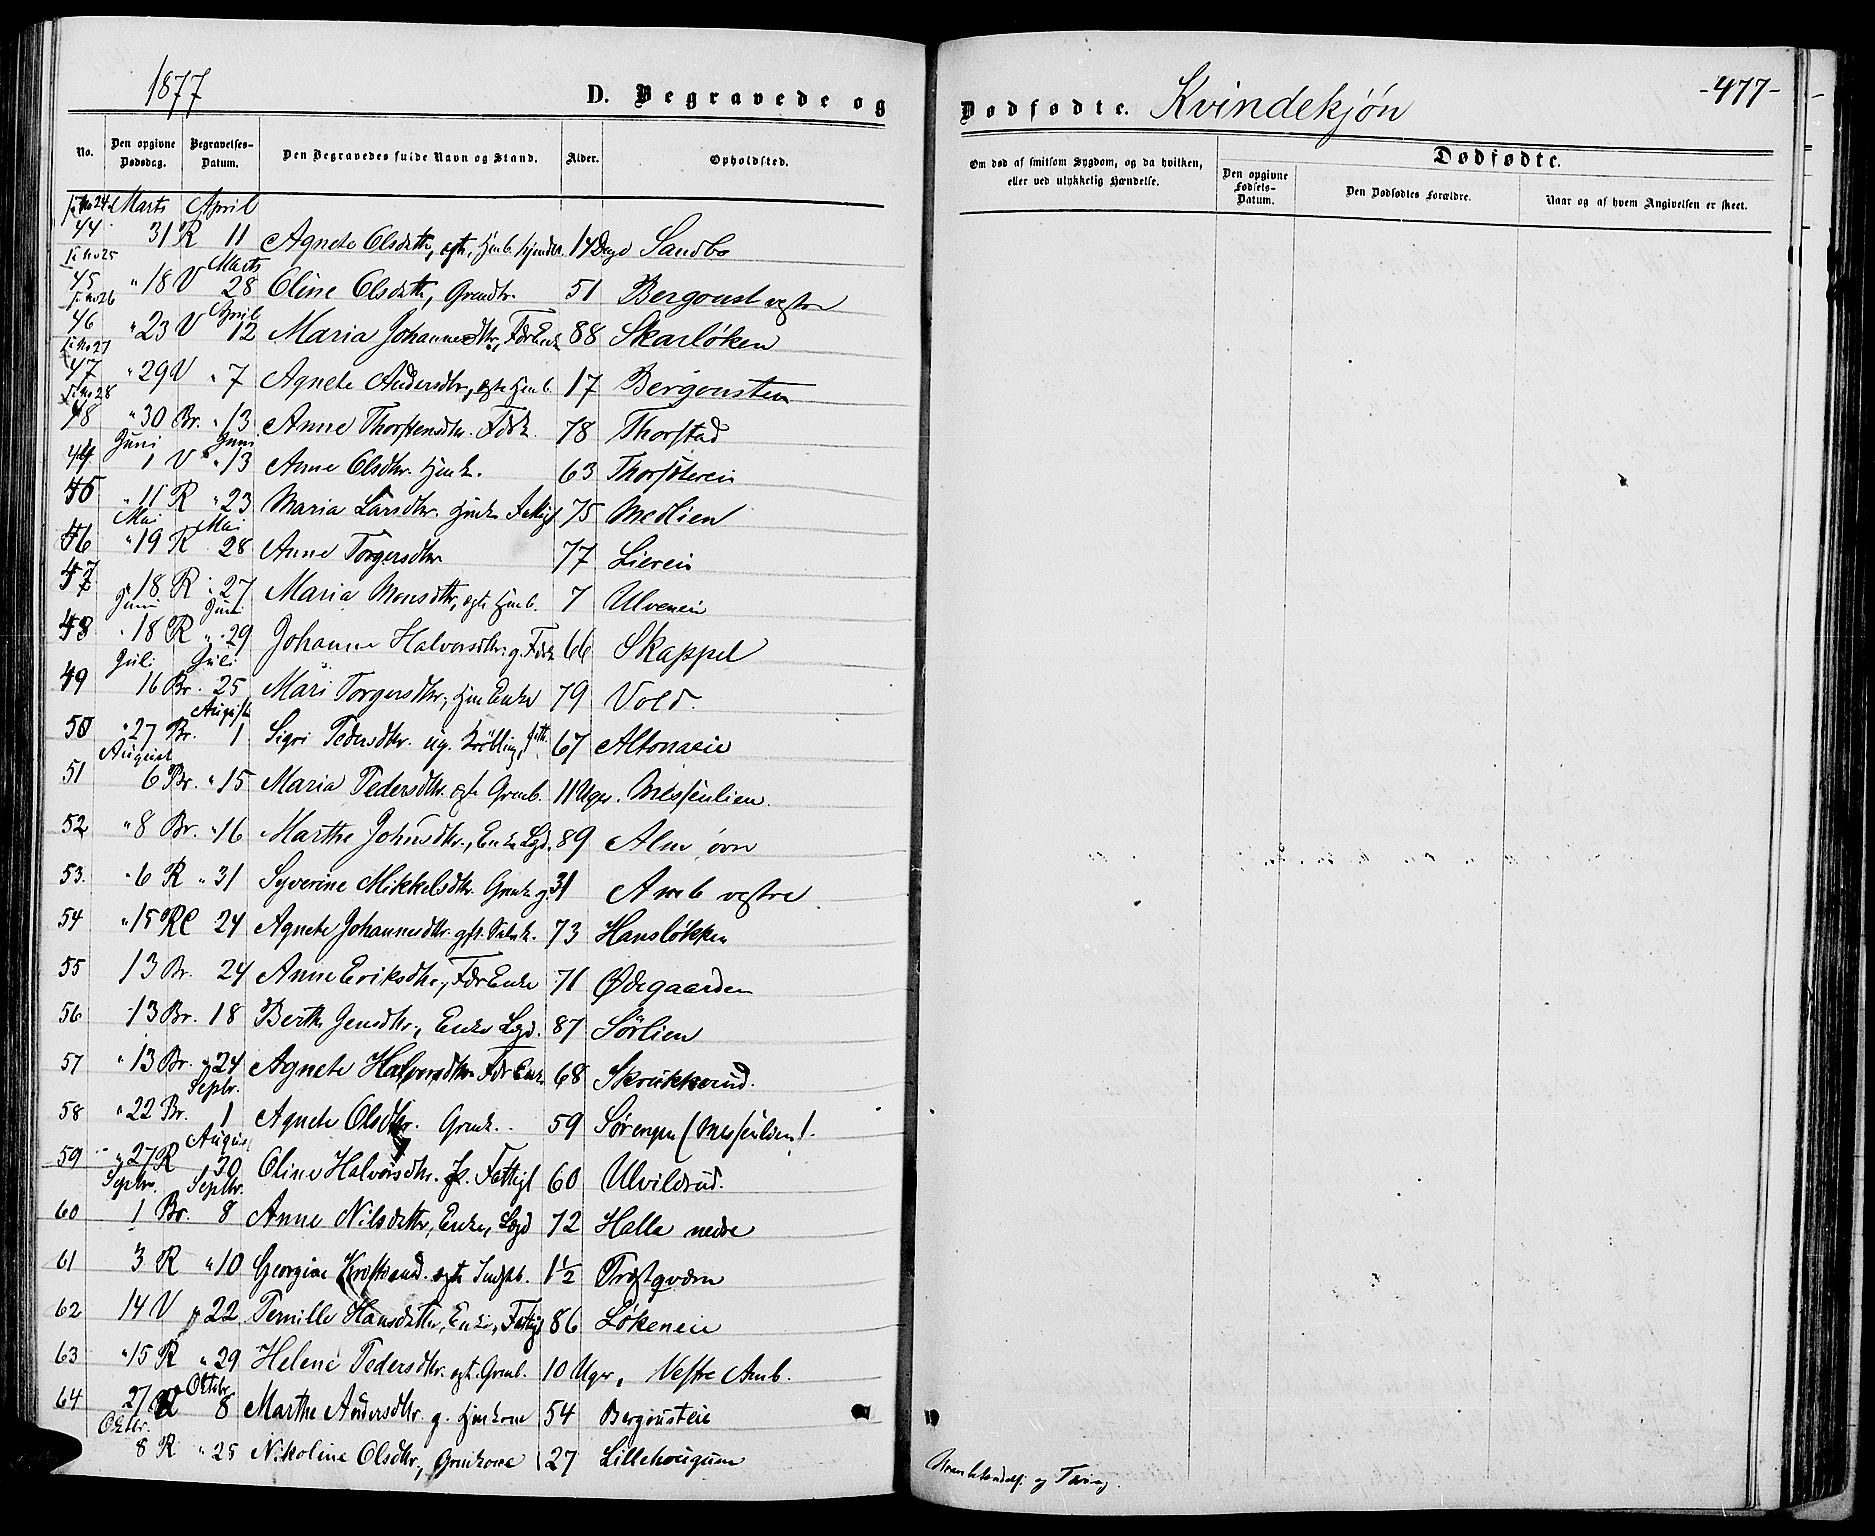 1877
D. Begravede og
Dødfødte. Kvindekjøn
-477-
No. Den opgivne Dødsdag. Begravelses-Datum. Den Begravedes fulde Navn og Stand. Alder. Opholdsted.
Om død af smitsom Sygdom, og da hvilken, eller ved ulykkelig Hændelse.
Dødfødte.
Den opgivne Fødsels-Datum. Den Dødfødtes Forældre. Naar og af hvem Angivelsen er skeet.
Marts April
44 31 R 11 Agnete Olsdattr, ægte 14 Dage Sandbo
Marts
45 " 18 V 28 Oline Olsdattr, 51 Bergoust vestre
April
46 " 23 V 12 Maria Johannesdtr, FdrEnke 88 Skarløken
47 " 29 V " 7 Agnete Andersdtr, ægte Hjmb. 17 Bergousten
48 " 30 Br. " 13 Anne Thorstensdtr. 78 Thorstad
Juni Juni
44 1 V " 13 Anne Olsdtr. 63
45 " 11 R " 23 Maria Larsdtr. 75 Medlien
Mai Mai
46 " 19 R 28 Anne Torgersdtr 77 Liereie
47 " 18 R " 27 Maria Monsdttr, ægte Hjmb. 7 Ulveneie
Juni Juni
48 " 18 R " 29 Johanne Halvorsdtr. g. 66 Skappel
Juli Juli
49 16 Br. 25 Mari Torgersdtr, Enke 79 Vold.
August
50 " 27 Br. 1 Sigri Pedersdtr. ug. 67 Altonaeie
August
51 6 Br. " 15 Maria Pedersdtr. ægte Grmb. 11 Uger. Messenlien.
52 " 8 Br. " 16 Marthe Johnsdtr., Enke Lgd. 89 Alm øvre
53. " 6 R " 31 Syverine Mikkelsdtr. g. 31 Amb vestre
54 " 15 R 24 Agnete Johannesdtr. 73 Hansløkken
55 13 Br. 24 Anne Eriksdtr, FdrEnke 71 Ødegaarden
56 13 Br. 18 Berthe Jensdtr., Enke Lgd. 87 Sørlien
57 " 13 Br. " 24 Agnete Halvorsdtr FdrEnke 68 Skrukkerud.
Septbr.
58 " 22 Br. 1 Agnete Olsdtr. 59 Sørengen (Messenlien).
August
59 " 27 R 30 Oline Halvorsdtr. Fattigl 60 Ulvildrud.
Septbr. Septbr.
60 1 Br. 8 Anne Nilsdattr, Enke, Lgd 72 Halla nedre
61 3 R " 10 Georgine ægte 1½ Præstqværn
62 14 V " 22 Pernille Hansdatter, Enke, Fattigl 86 Løkeneie
63 " 15 R " 29 Helene Pedersdtr. ægt. Grmb. 10 Uger, Vestre Amb.
Oktbr
64 27 8 Marthe Andersdtr. g. 54 Bergousteie
Oktbr.
8 R " 25 Nikoline Olsdtr, 27 Lillehougum